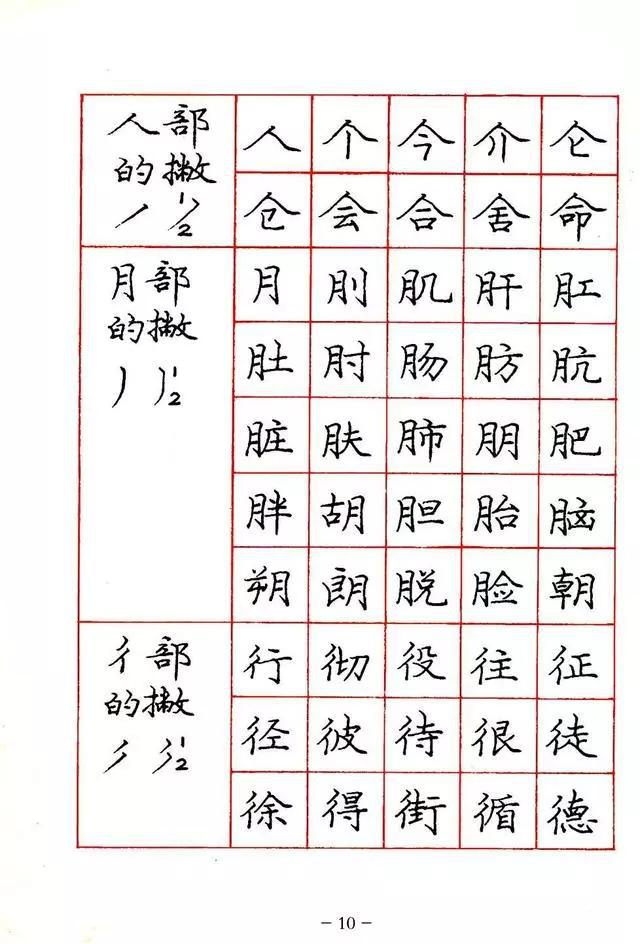 人部
的撇
丿 丿½
人 个 今 介 仑
仓 会 合 舍 命
月部
的撇
丿 丿½
月 刖 肌 肝 肛
肚 肘 肠 肪 肮
脏 肤 肺 朋 肥
胖 胡 胆 胎 脑
朔 朗 脱 脸 朝
彳部
的撇
丿 丿½
行 彻 役 往 征
径 彼 待 很 徒
徐 得 街 循 德
- 10 -